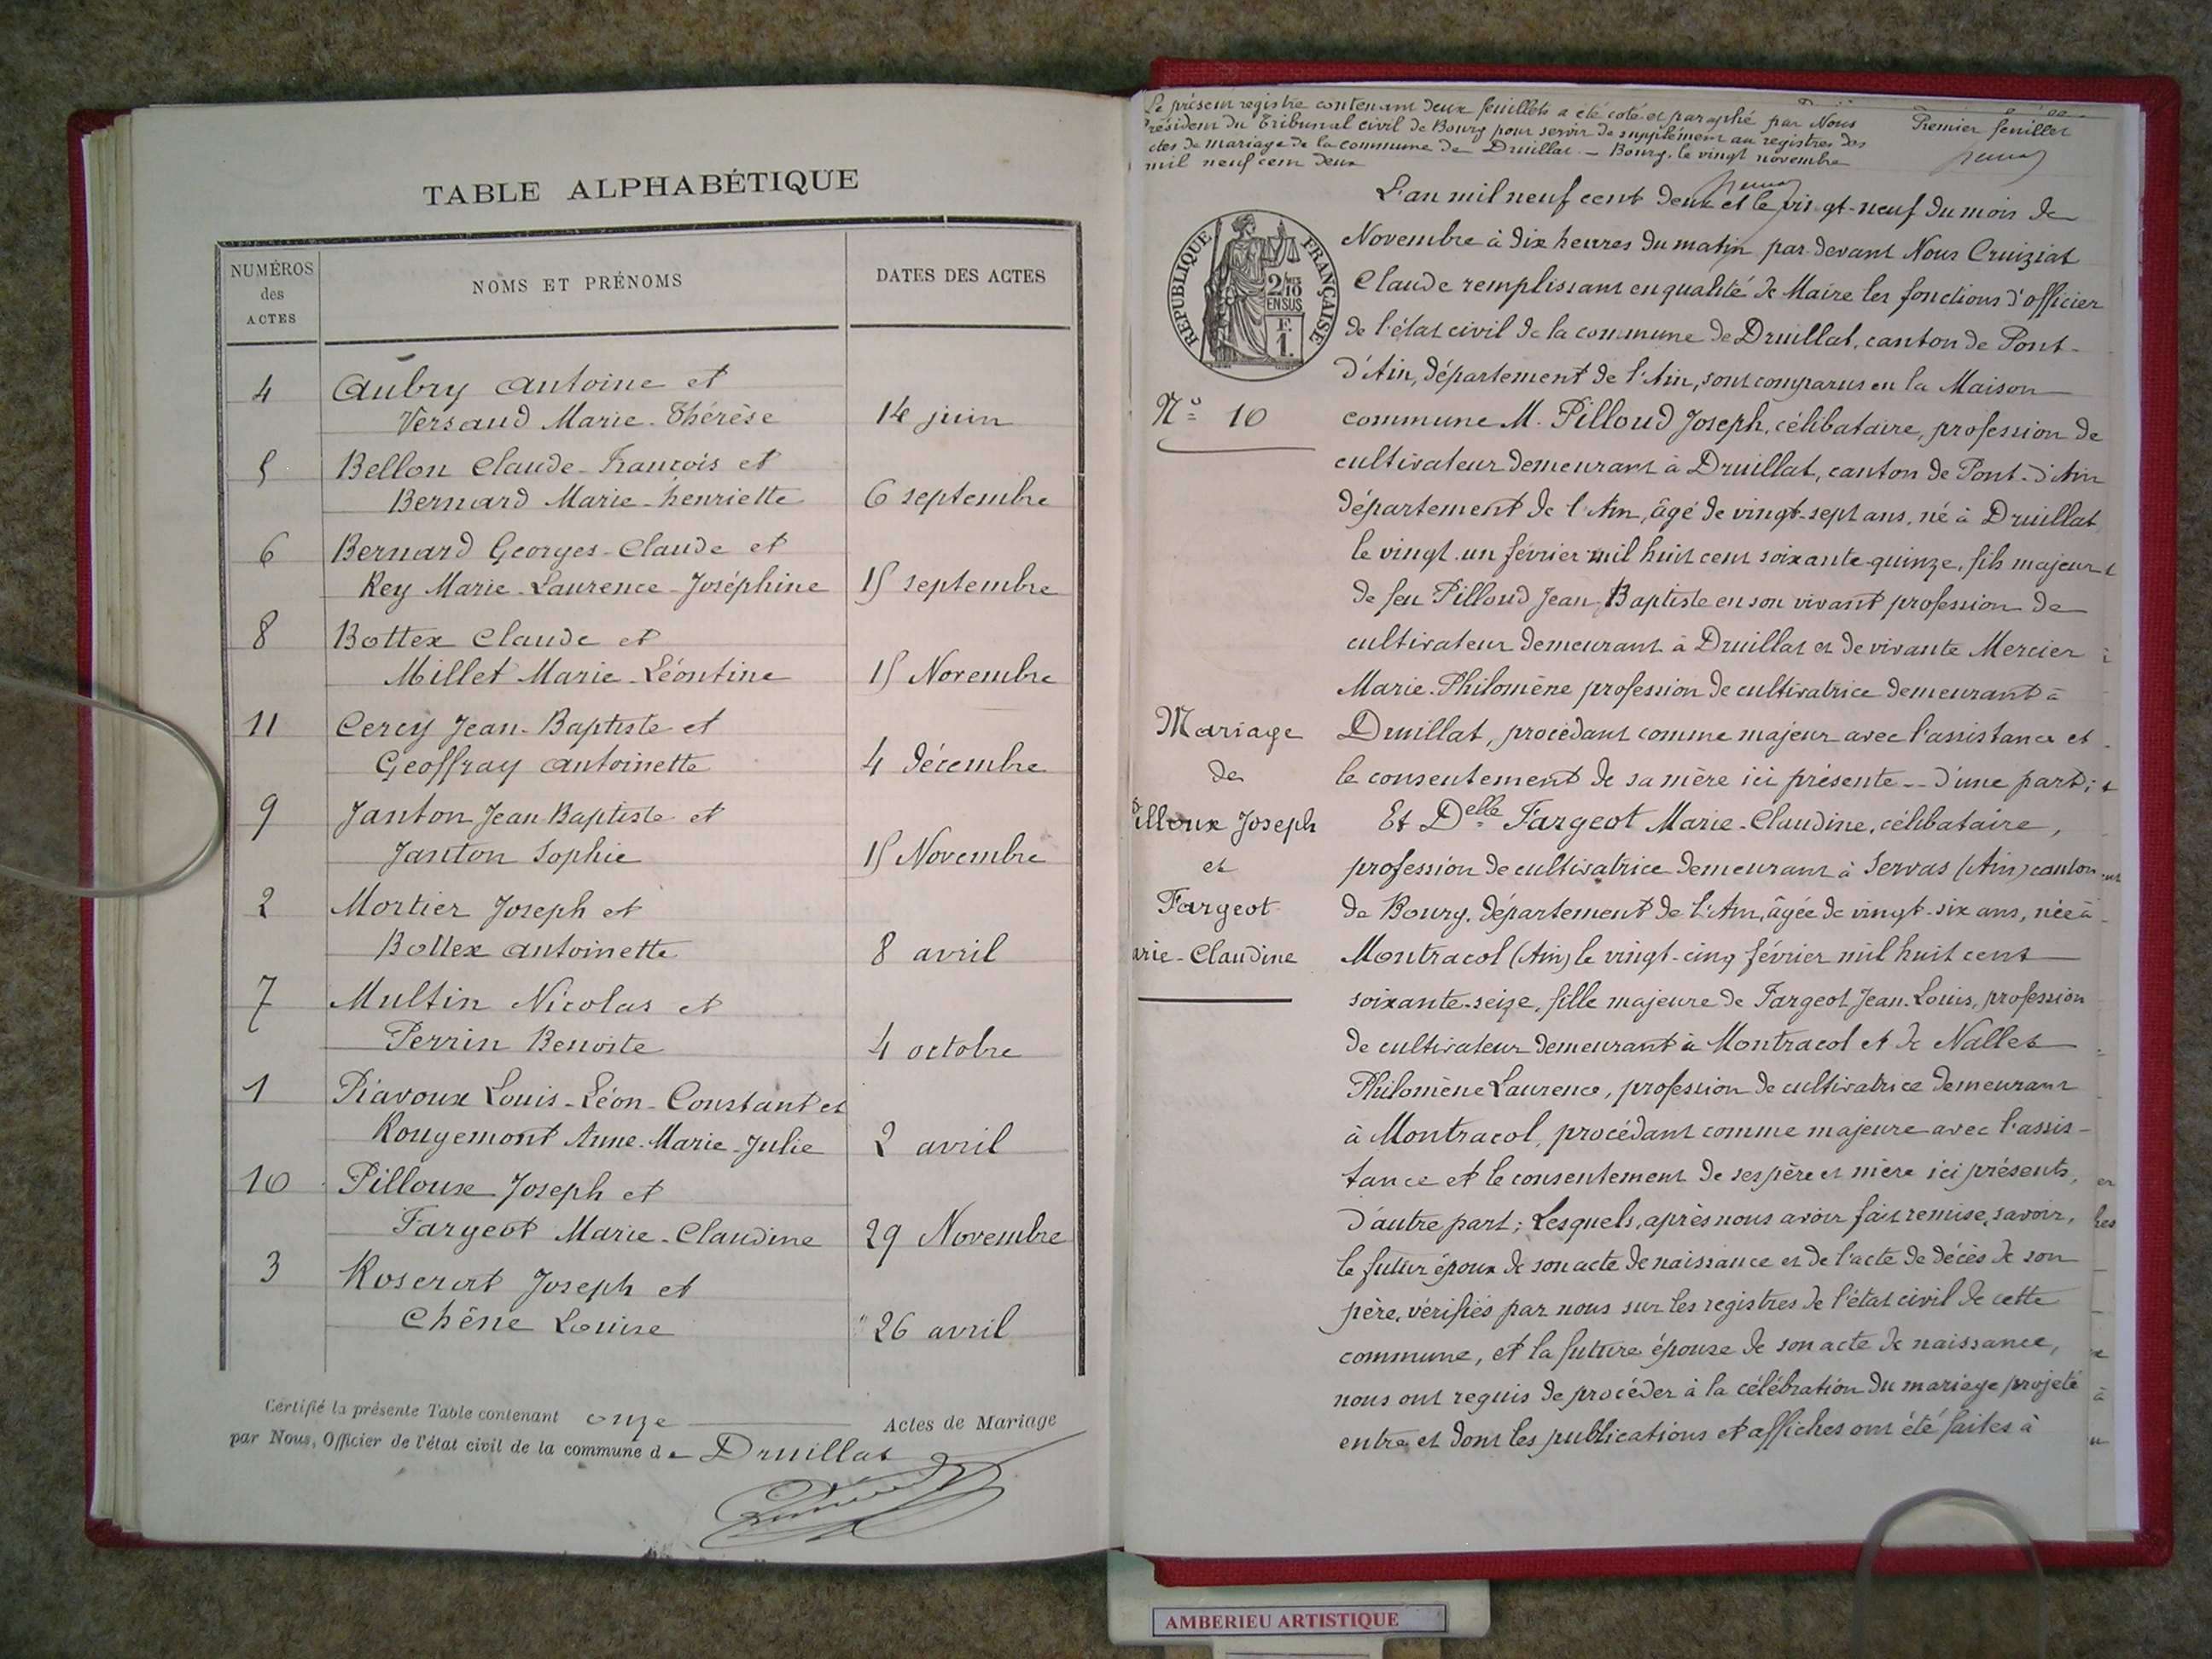 TABLE ALPHABÉTIQUE
NUMÉROS
des
ACTES
NOMS ET PRÉNOMS
DATES DES ACTES
4 Aubry Antoine et
Versaud Marie-Thérèse 14 juin
5 Bellon Claude-François et
Bernard Marie-henriette 6 septembre
6 Bernard Georges-Claude et
Rey Marie-Laurence-Joséphine 15 septembre
8 Bottex Claude et
Millet Marie-Léontine 15 Novembre
11 Cercy Jean-Baptiste et
Geoffray Antoinette 4 décembre
9 Janton Jean Baptiste et
Janton Sophie 15 Novembre
2 Mortier Joseph et
Bottex Antoinette 8 avril
7 Multin Nicolas et
Perrin Benoite 4 octobre
1 Piavoux Louis-Léon-Constant et
Rougemont Anne-Marie-Julie 2 avril
10 Pilloux Joseph et
Fargeot Marie-Claudine 29 Novembre
3 Roserat Joseph et
Chêne Louise 26 avril
Certifié la présente Table contenant onze Actes de Mariage
par Nous, Officier de l'état civil de la commune de Druillat
Le présent registre contenant deux feuillets a été coté et paraphé par Nous
Président du Tribunal civil de Bourg pour servir de supplément au registres des
ctes de mariage de la commune de Druillat — Bourg, le vingt novembre
mil neuf cent deux
Premier feuillet
RÉPUBLIQUE FRANÇAISE
2/10
EN SUS
F.
1.
L'an mil neuf cent deux et le vingt-neuf du mois de
Novembre à dix heures du matin par-devant Nous Cruiziat
Claude remplissant en qualité de Maire les fonctions d'officier
de l'état civil de la commune de Druillat, canton de Pont-
d'Ain, département de l'Ain, sont comparus en la Maison
N° 10
commune M. Pilloud Joseph, célibataire, profession de
cultivateur demeurant à Druillat, canton de Pont-d'Ain
département de l'Ain, âgé de vingt-sept ans, né à Druillat
le vingt-un février mil huit cent soixante-quinze, fils majeur
de feu Pilloud Jean-Baptiste en son vivant profession de
cultivateur demeurant à Druillat et de vivante Mercier
Marie-Philomène profession de cultivatrice demeurant à
Druillat, procédant comme majeur avec l'assistance et
le consentement de sa mère ici présente -- d'une part;
Mariage
de
Pilloux Joseph
et
Fargeot
arie-Claudine
Et Delle Fargeot Marie-Claudine, célibataire,
profession de cultivatrice demeurant à Servas (Ain) canton
de Bourg, département de l'Ain, âgée de vingt-six ans, née à
Montracol (Ain) le vingt-cinq février mil huit cent
soixante-seize, fille majeure de Fargeot Jean-Louis, profession
de cultivateur demeurant à Montracol et de Nallet
Philomène Laurence, profession de cultivatrice demeurant
à Montracol, procédant comme majeure avec l'assis-
tance et le consentement de ses père et mère ici présents,
d'autre part; Lesquels, après nous avoir fait remise, savoir,
le futur époux de son acte de naissance et de l'acte de décès de son
père, vérifiés par nous sur les registres de l'état civil de cette
commune, et la future épouse de son acte de naissance,
nous ont requis de procéder à la célébration du mariage projeté
entre et dont les publications et affiches ont été faites à
AMBERIEU ARTISTIQUE